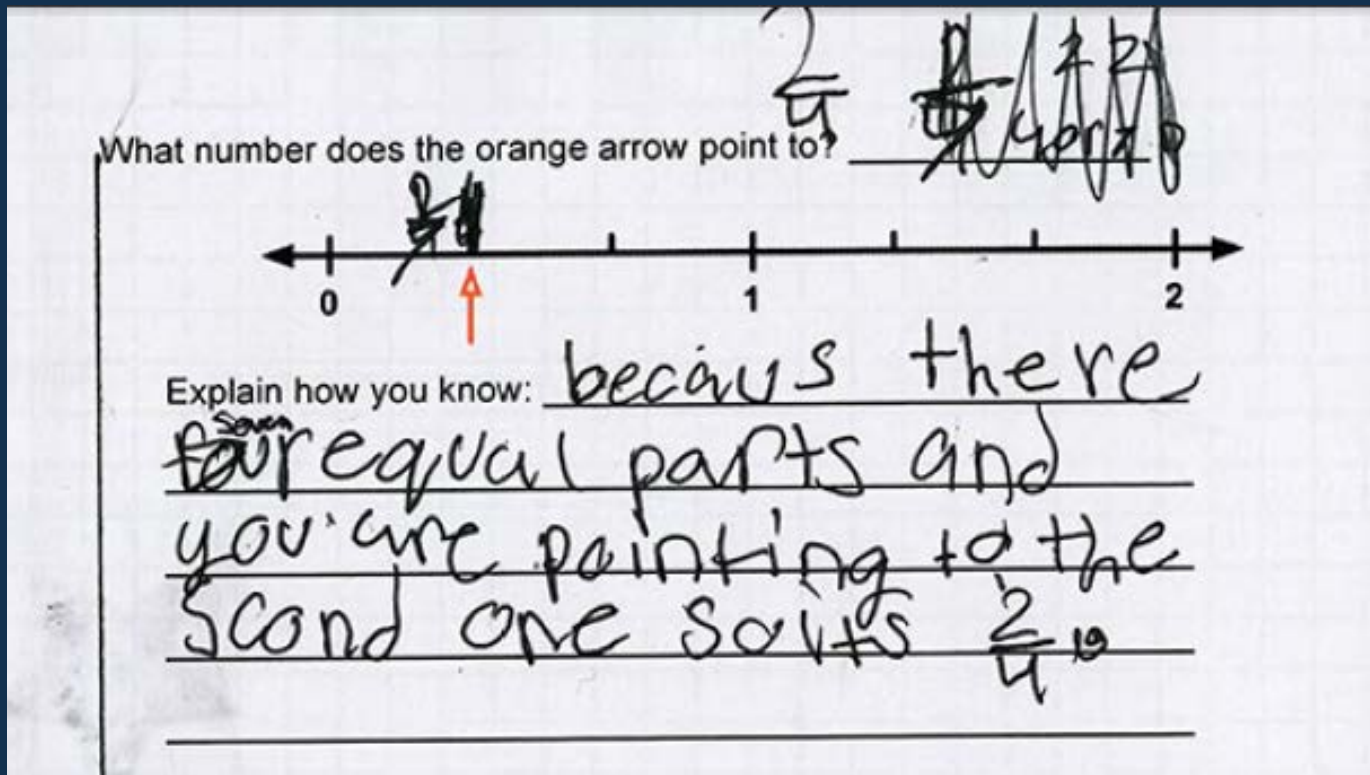 2/4
What number does the orange arrow point to?
0 1 2
Explain how you know: becaus there
seven
four equal parts and
you are pointing to the
scond one so its 2/4